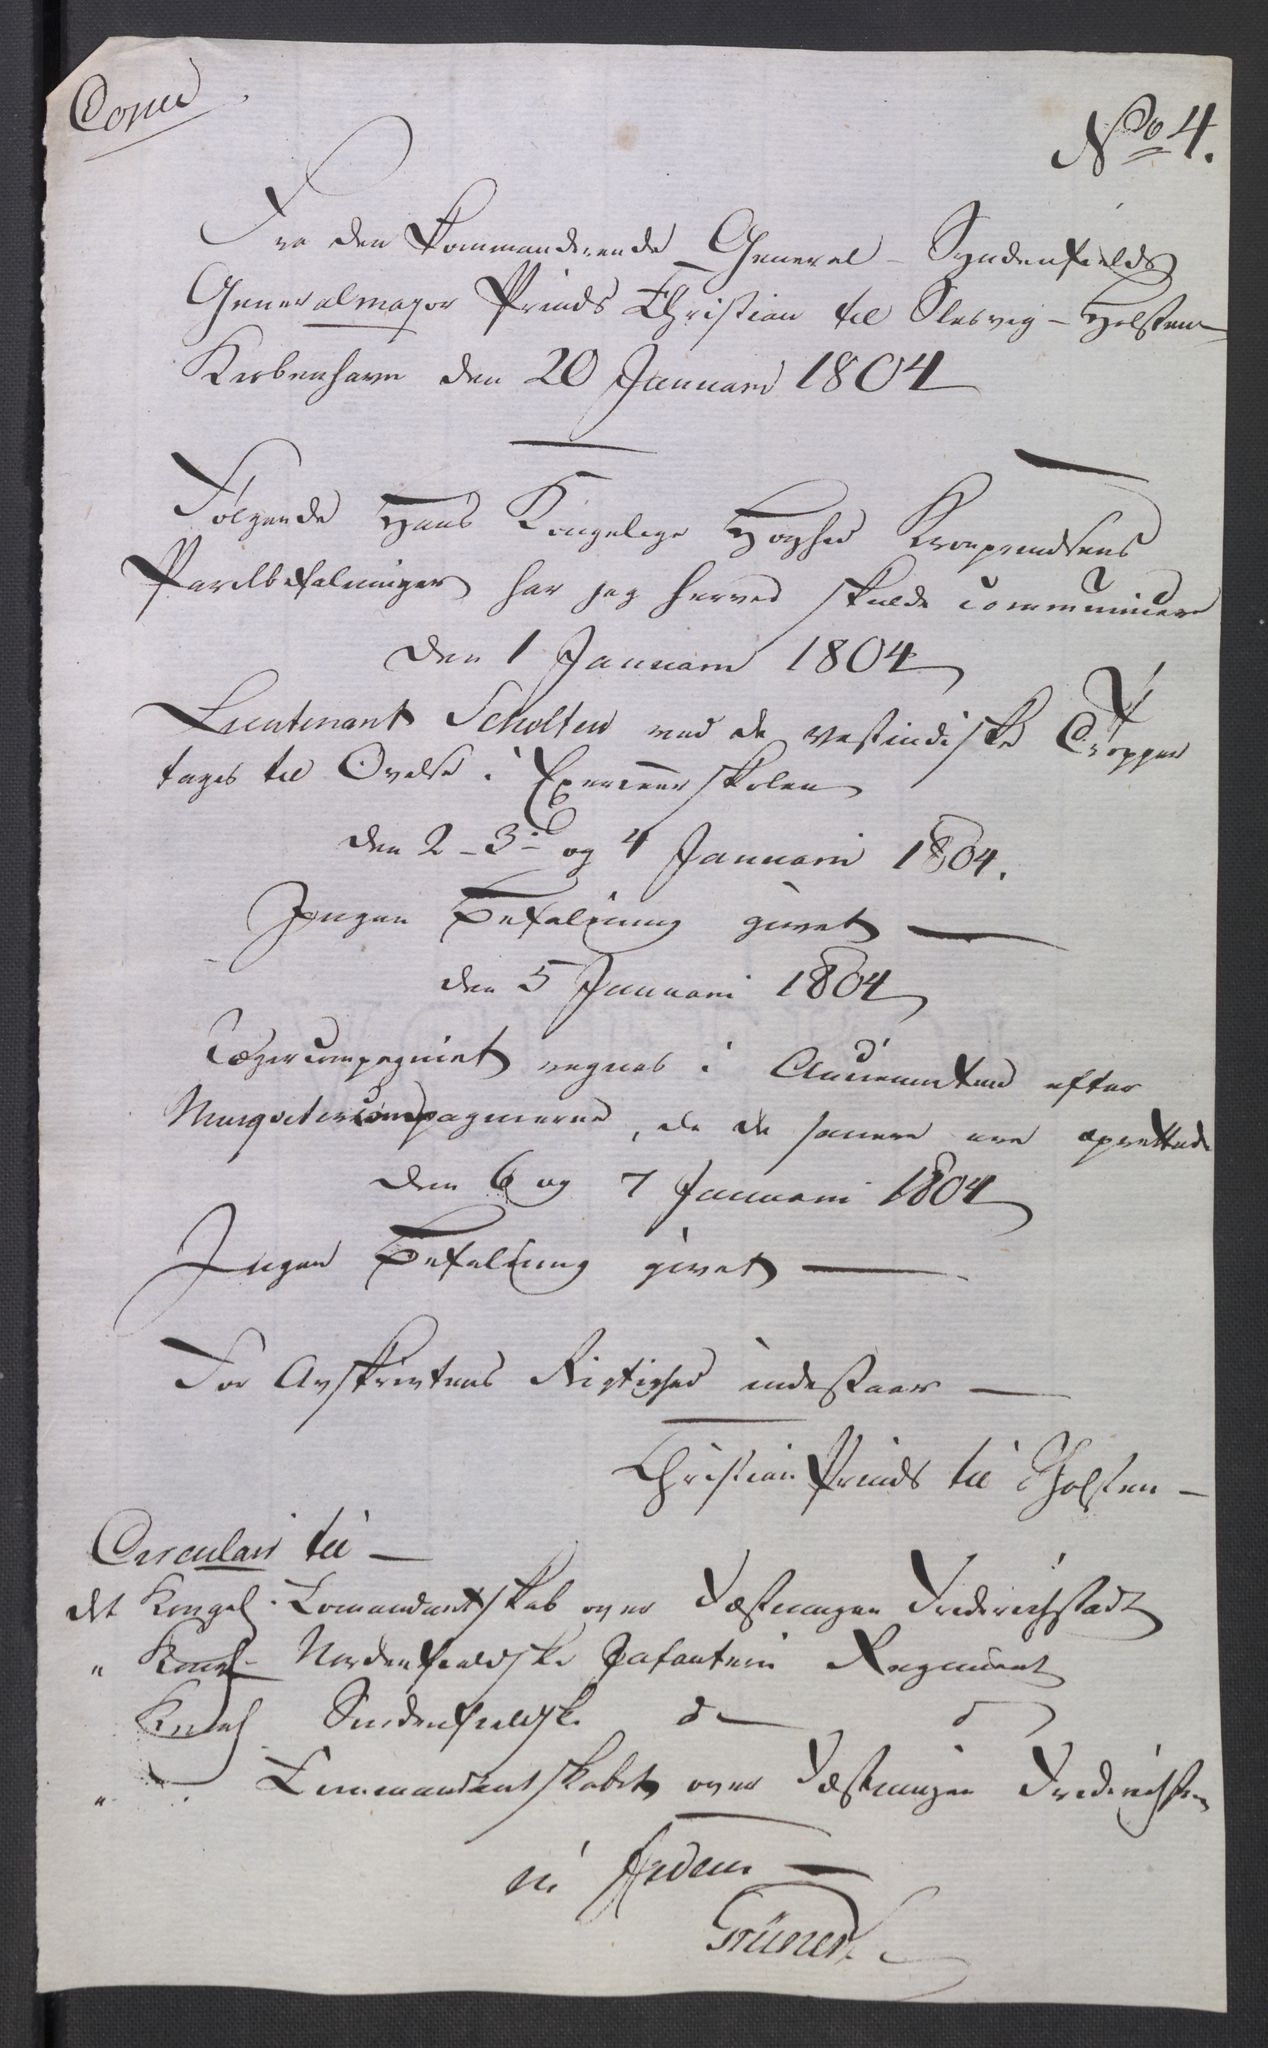 Copie
No 4.
Fra den kommanderende General Syndenfields
Generalmajor Prinds Christian til Slesvig-Holsten
Kiøbenhavn den 20 Januarii 1804
Følgende Hans Kongelige Høyhed Kronprindsens
Parolbefalninger har jeg herved skulde communicere
den 1 Januarii 1804
Lieutenant Scholten ved de vestindiske Tropper
tages til Øvelse i Exerceer skolen
den 2-3- og 4 Januarii 1804.
Ingen Befaling givet
den 5 Januarii 1804
Jægercompagniet regnes i Anciennitet efter
Musqueteercompagnierne, da de senere ere oprettede
den 6 og 7 Januarii 1804
Ingen Befaling givet
For Avskrivtens Rigtighed indestaaer
Christian Prinds til Holsten
Circulair til
det Kongel. Commandantskab over Fæstningen Friderichstadt
" Kongl Nordenfieldske Infanterie Regiment
Kongl Sindenfieldske d d
" Commandantskabet over Fæstningen Friderichsteen
in fidem
Grüner